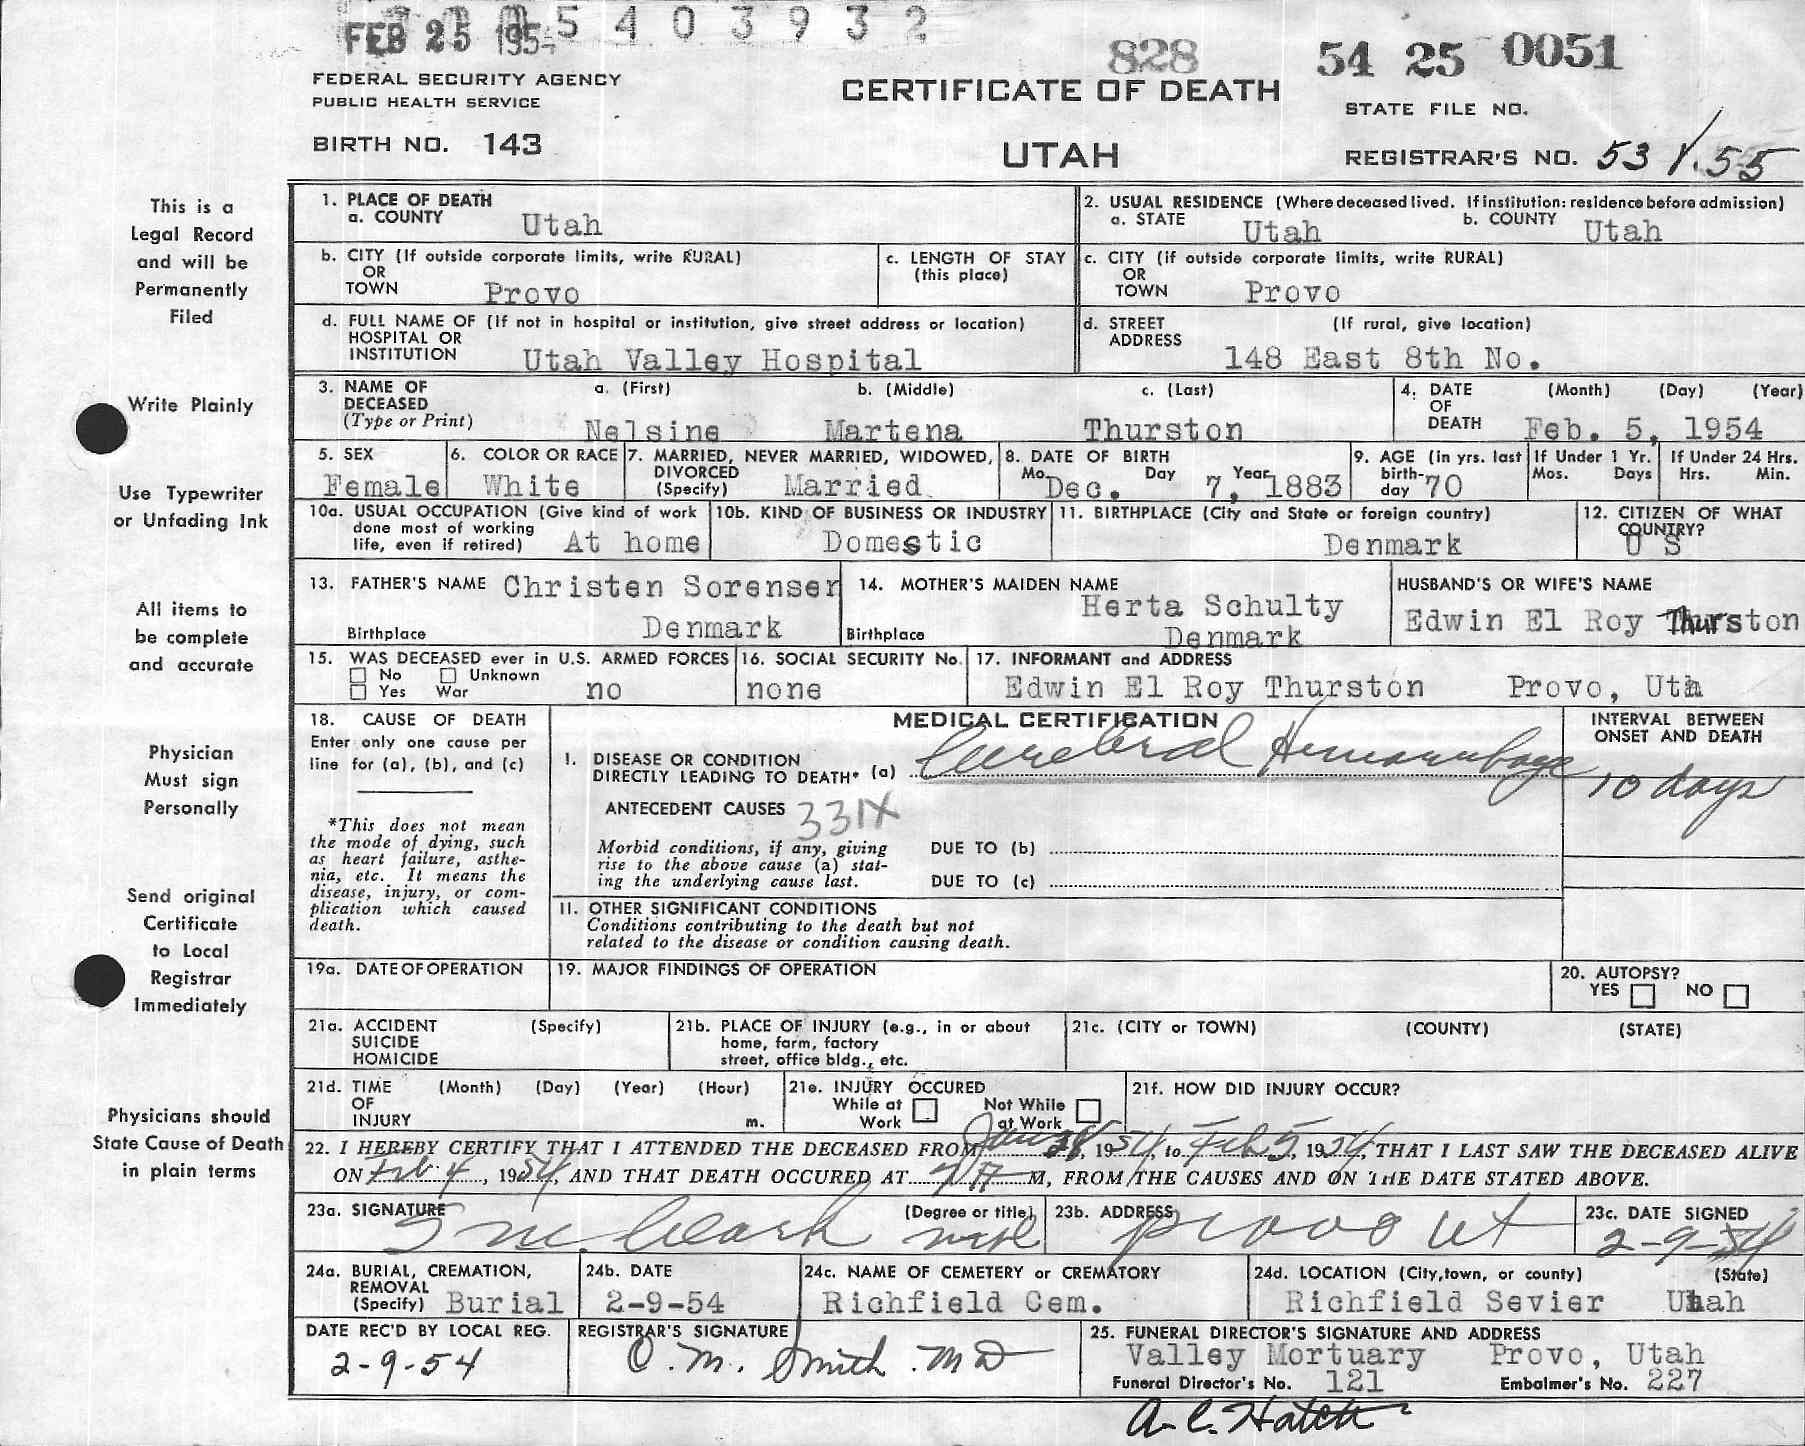 FEB 25 195
5 4 0 3 9 3 2
828
54 25 0051
FEDERAL SECURITY AGENCY
PUBLIC HEALTH SERVICE
CERTIFICATE OF DEATH
STATE FILE NO.
BIRTH NO. 143
UTAH
REGISTRAR'S NO. 53
55
This is a
Legal Record
and will be
Permanently
Filed
Write Plainly
Use Typewriter
or Unfading Ink
All items to
be complete
and accurate
Physician
Must sign
Personally
Send original
Certificate
to Local
Registrar
Immediately
Physicians should
State Cause of Death
in plain terms
1. PLACE OF DEATH
a. COUNTY Utah
2. USUAL RESIDENCE (Where deceased lived. If institution: residence before admission)
a. STATE Utah b. COUNTY Utah
b. CITY (If outside corporate limits, write RURAL)
OR
TOWN Provo
c. LENGTH OF STAY
(this place)
c. CITY (if outside corporate limits, write RURAL)
OR
TOWN Provo
d. FULL NAME OF (If not in hospital or institution, give street address or location)
HOSPITAL OR
INSTITUTION Utah Valley Hospital
d. STREET (If rural, give location)
ADDRESS 148 East 8th No.
3. NAME OF a. (First) b. (Middle) c. (Last)
DECEASED
(Type or Print) Nelsine Martena Thurston
4. DATE (Month) (Day) (Year)
OF
DEATH Feb. 5, 1954
5. SEX
Female
6. COLOR OR RACE
White
7. MARRIED, NEVER MARRIED, WIDOWED,
DIVORCED
(Specify) Married
8. DATE OF BIRTH
Mo. Day Year
Dec. 7, 1883
9. AGE (in yrs. last
birth-
day 70
If Under 1 Yr.
Mos. Days
If Under 24 Hrs.
Hrs. Min.
10a. USUAL OCCUPATION (Give kind of work
done most of working
life, even if retired) At home
10b. KIND OF BUSINESS OR INDUSTRY
Domestic
11. BIRTHPLACE (City and State or foreign country)
Denmark
12. CITIZEN OF WHAT
COUNTRY?
U S
13. FATHER'S NAME Christen Sorensen
Birthplace Denmark
14. MOTHER'S MAIDEN NAME
Herta Schulty
Birthplace Denmark
HUSBAND'S OR WIFE'S NAME
Edwin El Roy Thurston
15. WAS DECEASED ever in U.S. ARMED FORCES
No Unknown
Yes War no
16. SOCIAL SECURITY No.
none
17. INFORMANT and ADDRESS
Edwin El Roy Thurston Provo, Uth
18. CAUSE OF DEATH
Enter only one cause per
line for (a), (b), and (c)
*This does not mean
the mode of dying, such
as heart failure, asthe-
nia, etc. It means the
disease, injury, or com-
plication which caused
death.
MEDICAL CERTIFICATION
INTERVAL BETWEEN
ONSET AND DEATH
I. DISEASE OR CONDITION
DIRECTLY LEADING TO DEATH* (a) Cerebral Hemorrhage
10 days
ANTECEDENT CAUSES 331X
Morbid conditions, if any, giving
rise to the above cause (a) stat-
ing the underlying cause last.
DUE TO (b)
DUE TO (c)
II. OTHER SIGNIFICANT CONDITIONS
Conditions contributing to the death but not
related to the disease or condition causing death.
19a. DATE OF OPERATION
19. MAJOR FINDINGS OF OPERATION
20. AUTOPSY?
YES NO
21a. ACCIDENT (Specify)
SUICIDE
HOMICIDE
21b. PLACE OF INJURY (e.g., in or about
home, farm, factory
street, office bldg., etc.
21c. (CITY or TOWN) (COUNTY) (STATE)
21d. TIME (Month) (Day) (Year) (Hour)
OF
INJURY m.
21e. INJURY OCCURED
While at Work
Not While at Work
21f. HOW DID INJURY OCCUR?
22. I HEREBY CERTIFY THAT I ATTENDED THE DECEASED FROM Jan , 1954, to Feb 5, 1954, THAT I LAST SAW THE DECEASED ALIVE
ON Feb 4, 1954, AND THAT DEATH OCCURED AT A M, FROM THE CAUSES AND ON THE DATE STATED ABOVE.
23a. SIGNATURE (Degree or title)
Clark
23b. ADDRESS
Provo Ut
23c. DATE SIGNED
2-9-54
24a. BURIAL, CREMATION,
REMOVAL
(Specify) Burial
24b. DATE
2-9-54
24c. NAME OF CEMETERY or CREMATORY
Richfield Cem.
24d. LOCATION (City, town, or county) (State)
Richfield Sevier Utah
DATE REC'D BY LOCAL REG.
2-9-54
REGISTRAR'S SIGNATURE
O. M. Smith. MD
25. FUNERAL DIRECTOR'S SIGNATURE AND ADDRESS
Valley Mortuary Provo, Utah
Funeral Director's No. 121 Embalmer's No. 227
A. C. Hatch